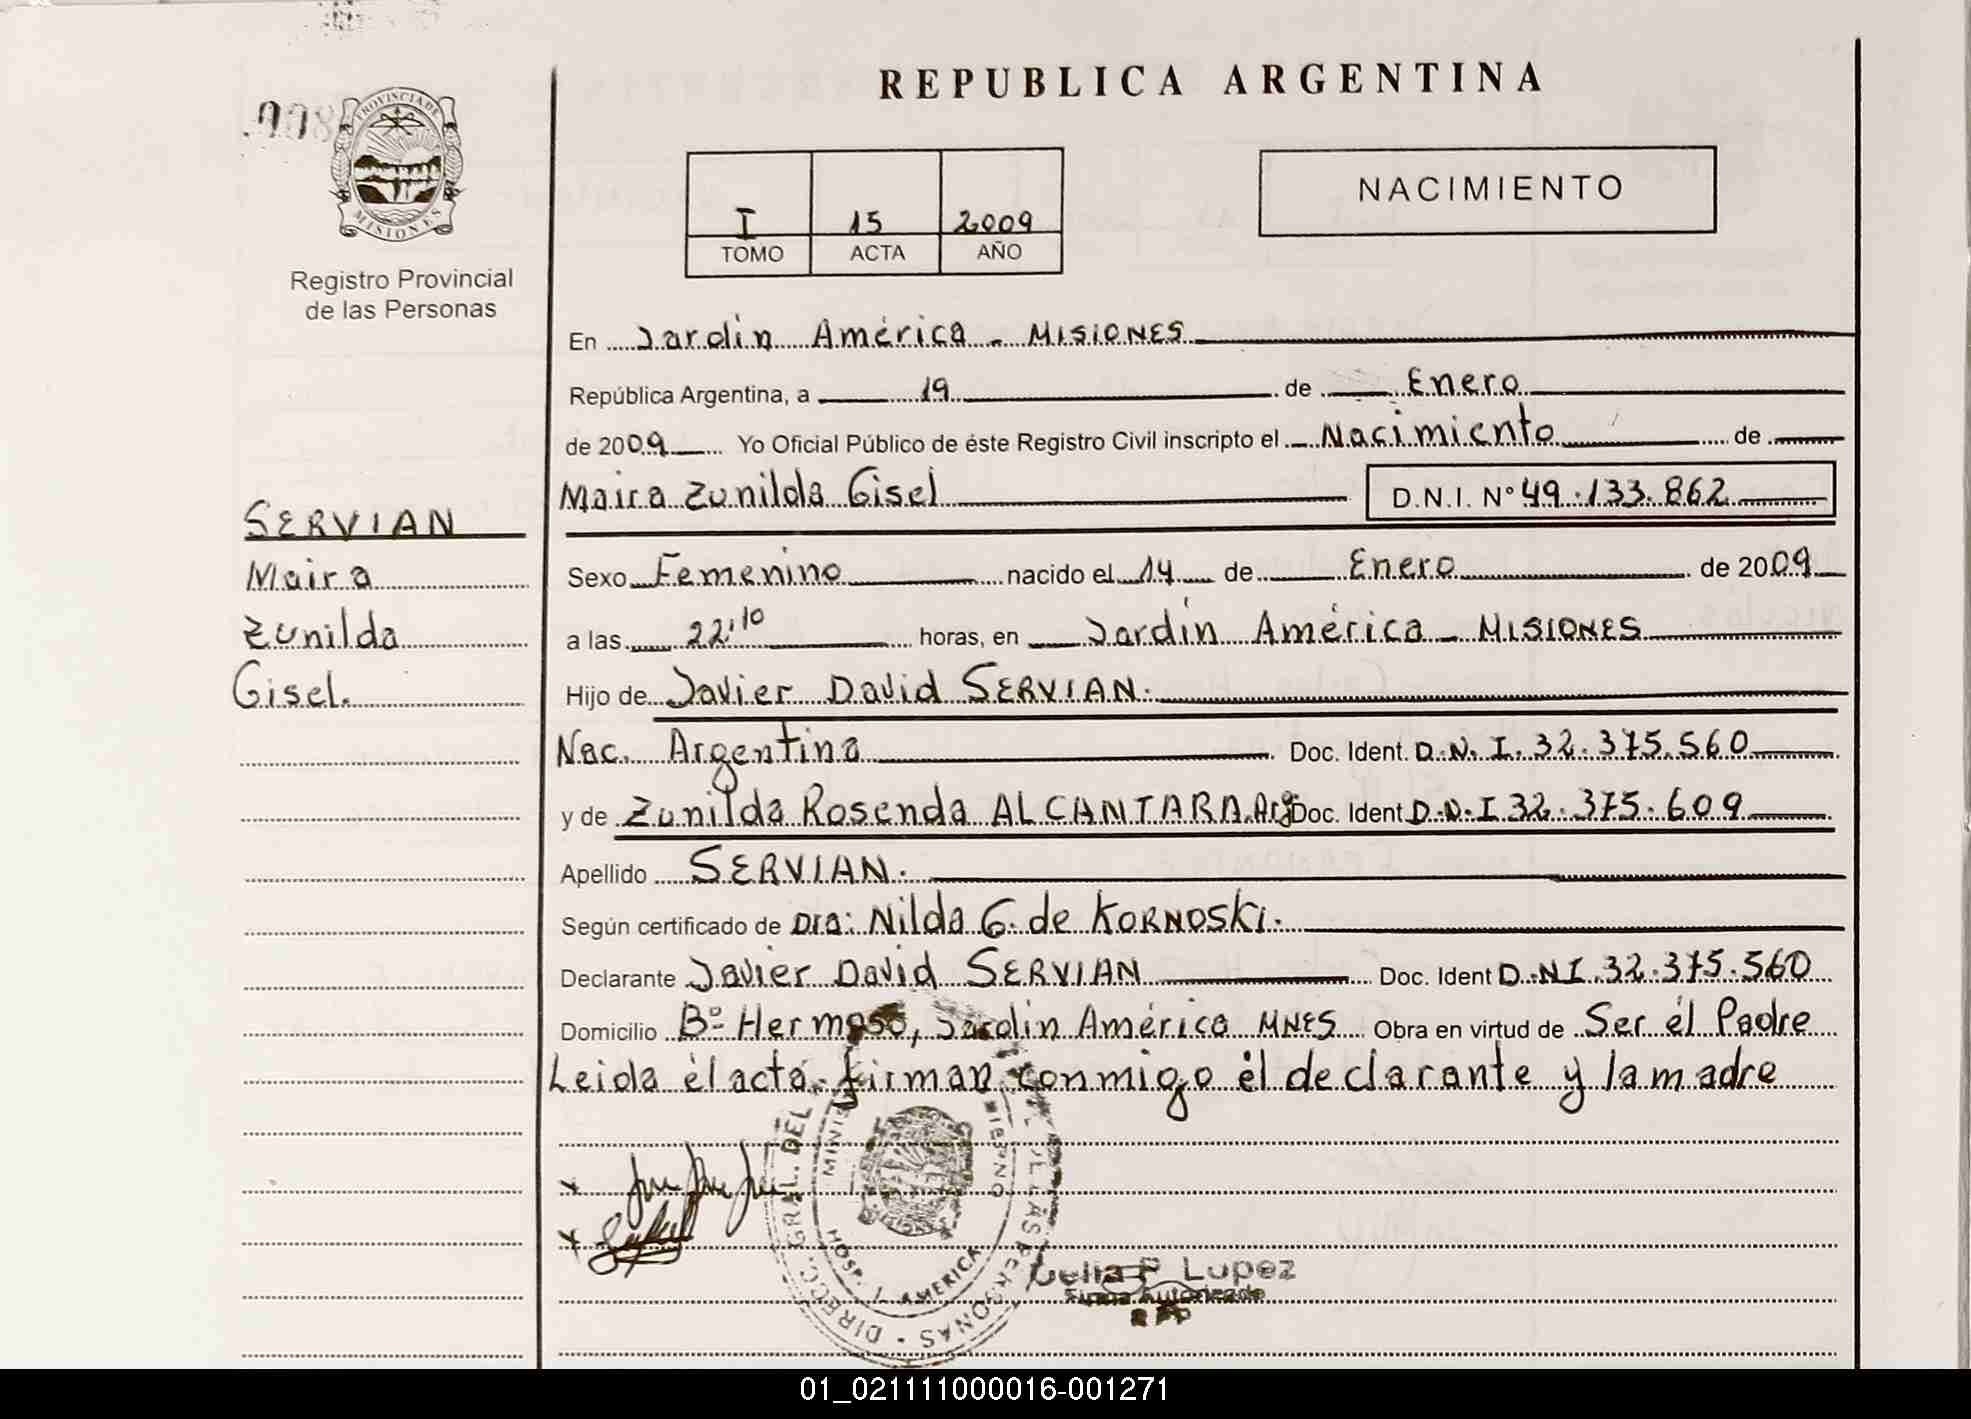 REPUBLICA ARGENTINA
PROVINCIA DE
MISIONES
Registro Provincial
de las Personas
I 15 2009
TOMO ACTA AÑO
NACIMIENTO
En Jardín América - MISIONES
República Argentina, a 19 de Enero
de 2009 Yo Oficial Público de éste Registro Civil inscripto el Nacimiento de
Maira Zunilda Gisel D.N.I. N° 49.133.862
SERVIAN
Maira
Zunilda
Gisel.
Sexo Femenino nacido el 14 de Enero de 2009
a las 22:10 horas, en Jardín América - MISIONES
Hijo de Javier David SERVIAN.
Nac. Argentina Doc. Ident. D.N.I. 32.375.560
y de Zunilda Rosenda ALCANTARA. Arg Doc. Ident D.N.I 32.375.609
Apellido SERVIAN.
Según certificado de Dra: Nilda G. de KORNOSKI.
Declarante Javier David SERVIAN Doc. Ident D.N.I. 32.375.560
Domicilio Bº Hermoso, Jardín América MNES Obra en virtud de Ser él Padre
Leida él acta. firman conmigo él declarante y la madre
DIRECC. GRAL. DEL DE LAS PERSONAS
HOSP. J. AMERICA
Celia P Lopez
Firma Autorizada
RPP
01_021111000016-001271